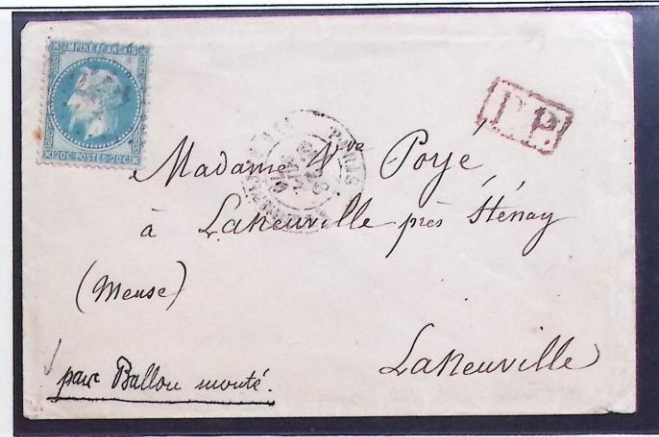 EMPIRE FRANÇAIS
20C POSTES 20C
P.P.
PARIS
Madame Vve Poyé,
à Laneuville près Sténay
(Meuse)
Laneuville
par Ballon monté.